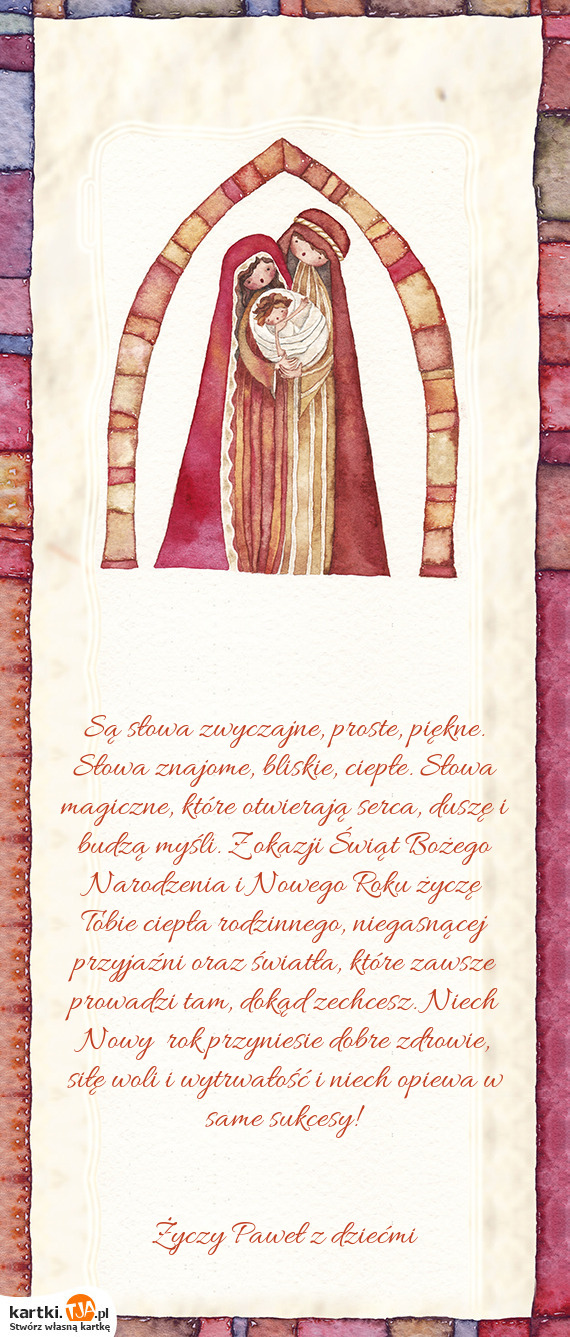 Są słowa zwyczajne, proste, piękne.
Słowa znajome, bliskie, ciepłe. Słowa
magiczne, które otwierają serca, duszę i
budzą myśli. Z okazji Świąt Bożego
Narodzenia i Nowego Roku życzę
Tobie ciepła rodzinnego, niegasnącej
przyjaźni oraz światła, które zawsze
prowadzi tam, dokąd zechcesz. Niech
Nowy rok przyniesie dobre zdrowie,
siłę woli i wytrwałość i niech opiewa w
same sukcesy!
Życzy Paweł z dziećmi
kartki.TJA.pl
Stwórz własną kartkę